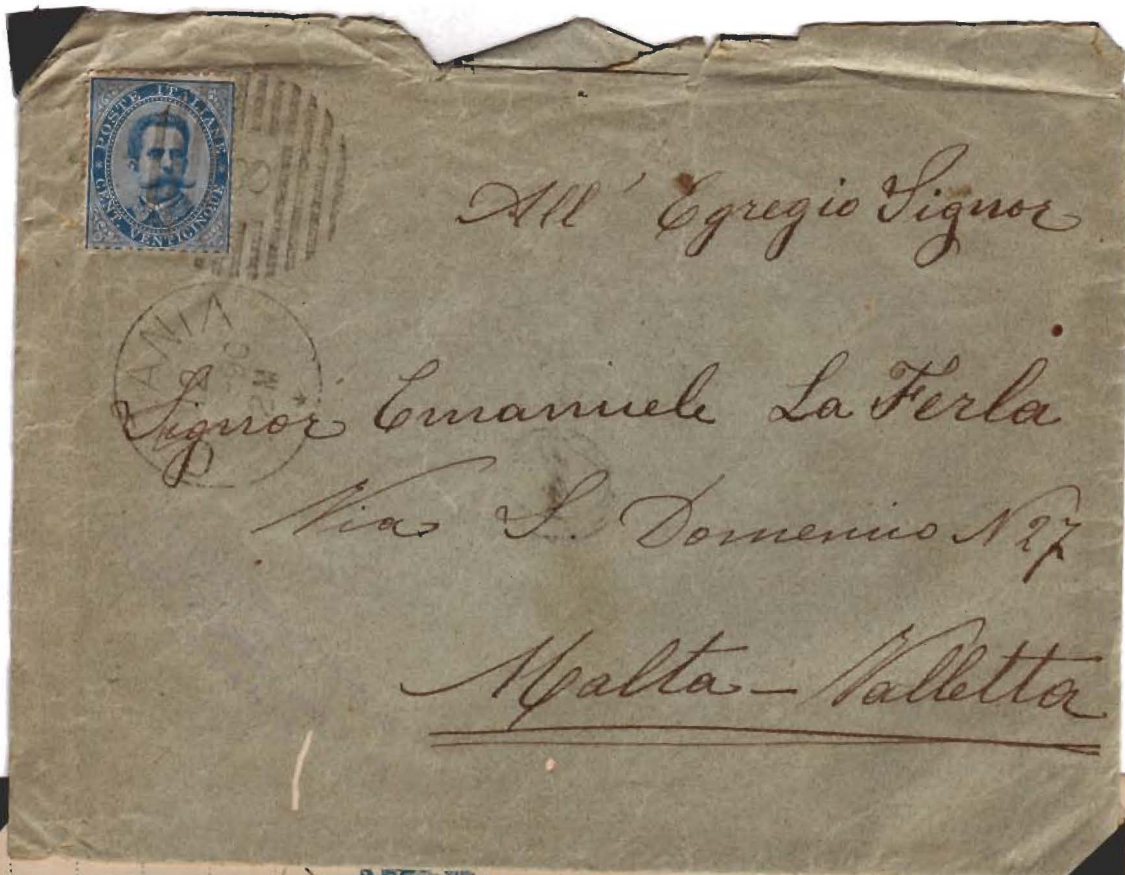 POSTE ITALIANE
CENT. VENTICINQUE
8
All' Egregio Signor
ANIA
2
90
2 M
Signor Emanuele La Ferla
Via S. Domenico N 27
Malta - Valletta